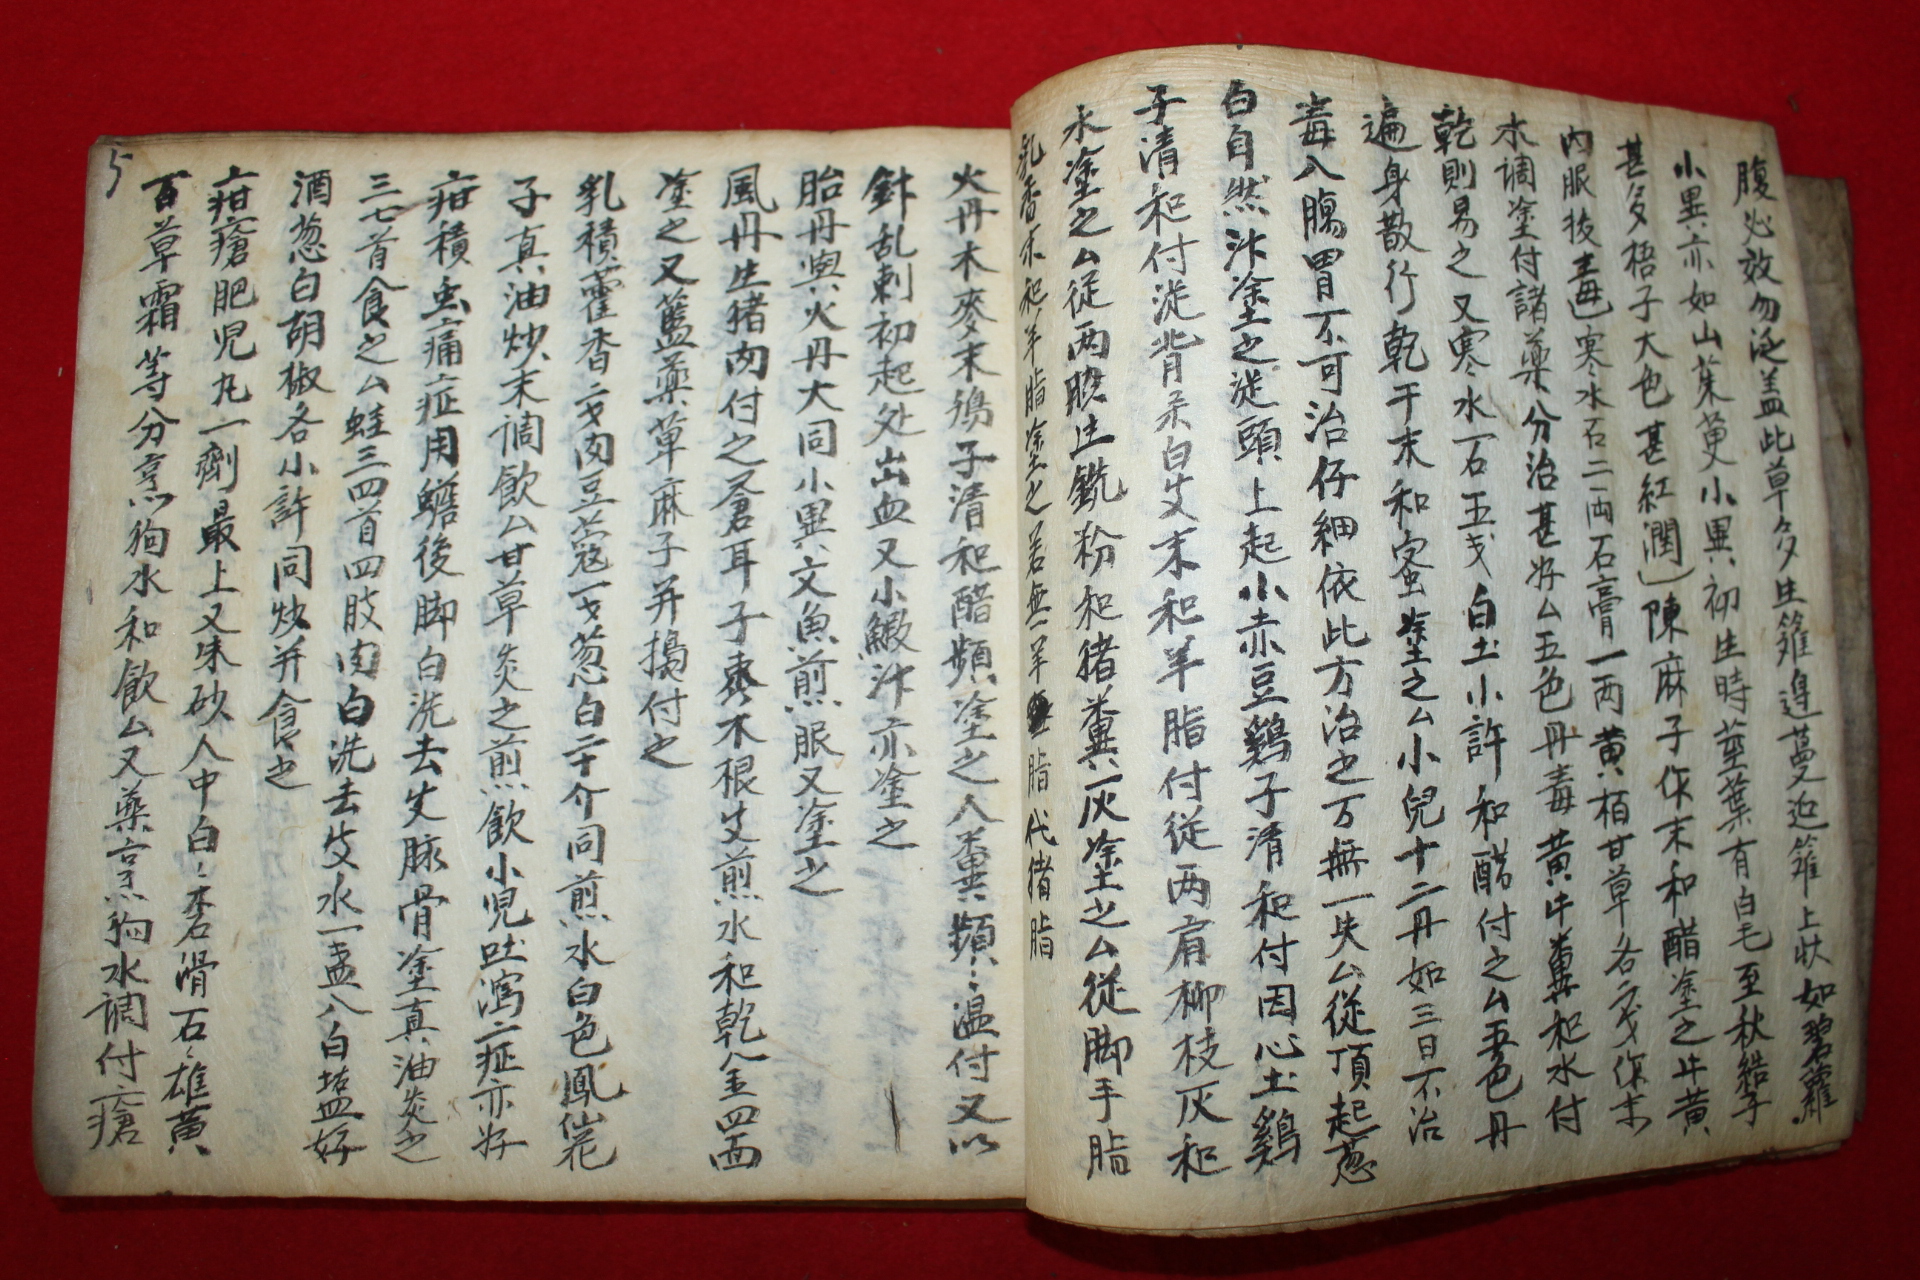 腹必效勿泛盖此草多生籬邊蔓延籬上狀如碧蘿
小異亦如山茱萸小異初生時莖葉有白毛至秋結子
甚多梧子大色甚紅潤陳麻子作末和醋塗之牛黃
內服後毒已寒水石二两石膏一两黃栢甘草各戔作末
水调塗付諸藥分治甚好厶五色丹毒黃牛糞和水付
乾則易之又寒水石五戔白土小許和醋付之厶五色丹
遍身散行乾干末和蜜塗之厶小兒十二丹如三日不治
毒入腸胃不可治仔細依此方治之万無一失厶從頂起葱
白自然汁塗之從頭上起小赤豆鷄子清和付因心土鷄
子清和付從背柔白艾末和羊脂付從两肩柳枝灰和
水塗之厶從两脥生銑粉和猪糞灰塗之厶從脚手脂
乳香末和羊脂塗之若無羊脂代猪脂
火丹木麥末鷄子清和醋頻塗之人糞頻〻温付又以
針乱刺初起处出血又小鰍汁亦塗之
胎丹與火丹大同小異文魚煎服又塗之
風丹生猪肉付之蒼耳子棗木根皮煎水和乾全四两
塗之又藍藥草麻子并搗付之
乳積藿香二戈肉豆蔻一戈葱白二十介同煎水白色鳳仙花
子真油炒末调飲厶甘草炙之煎飲小児吐瀉二症亦好
疳積虫痛症用蟾後脚白洗去皮脉骨塗真油炙之
三七首食之厶蛙三四首四肢肉白洗去皮水一盏入白塩好
酒葱白胡椒各小許同炒并食之
疳瘡肥児丸一劑最上又朱砂人中白〻礬滑石〻雄黃
百草霜等分烹狗水和飲厶又藥烹狗水调付瘡
5